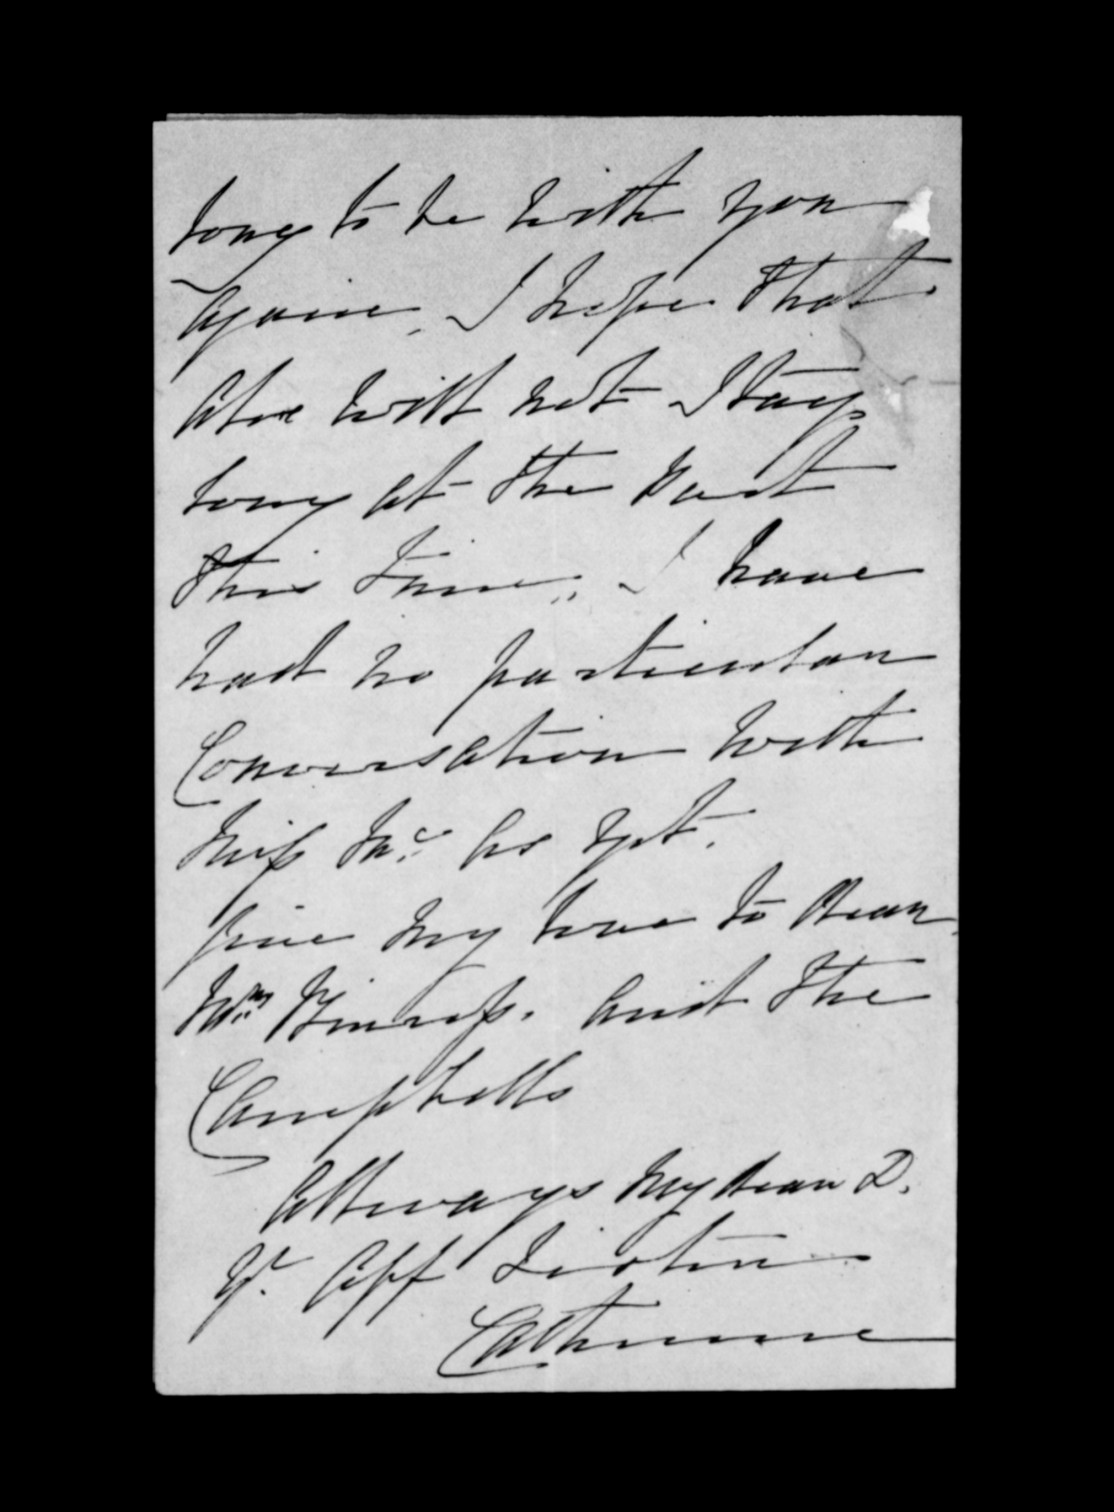 long to be with you
again, I hope that
Alex will not stay
long at the
this time, I have
had no particular
Conversation with
Miss Mc as yet.
Give my love to dear
Mrs Kinross. and the
Campbells
Always My dear D.
Yr. Aff Sister
Catherine